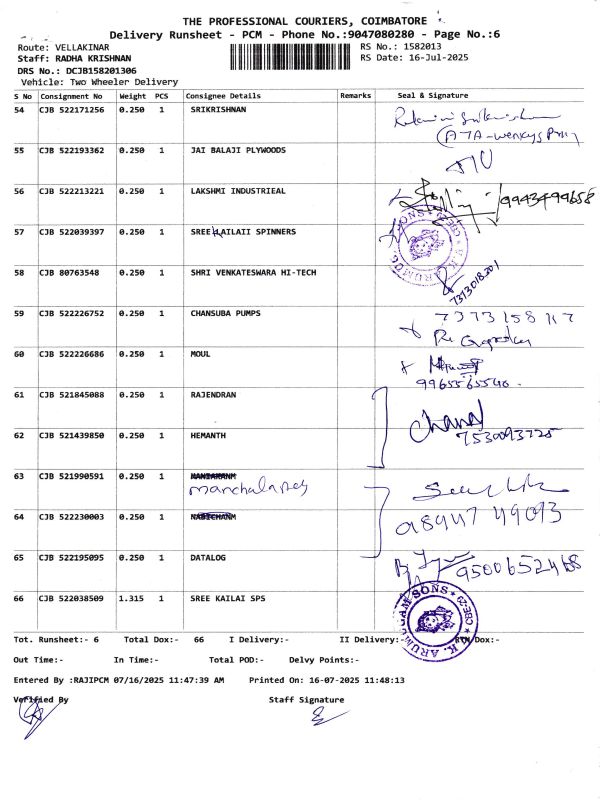 THE PROFESSIONAL COURIERS, COIMBATORE
Delivery Runsheet - PCM - Phone No.:9047080280 - Page No.:6
Route: VELLAKINAR RS No.: 1582013
Staff: RADHA KRISHNAN RS Date: 16-Jul-2025
DRS No.: DCJB158201306
Vehicle: Two Wheeler Delivery
S No Consignment No Weight PCS Consignee Details Remarks Seal & Signature
54 CJB 522171256 0.250 1 SRIKRISHNAN
55 CJB 522193362 0.250 1 JAI BALAJI PLYWOODS
56 CJB 522213221 0.250 1 LAKSHMI INDUSTRIEAL 9943499658
57 CJB 522039397 0.250 1 SREE KAILAII SPINNERS
58 CJB 80763548 0.250 1 SHRI VENKATESWARA HI-TECH
59 CJB 522226752 0.250 1 CHANSUBA PUMPS
60 CJB 522226686 0.250 1 MOUL
9965565540
61 CJB 521845088 0.250 1 RAJENDRAN
62 CJB 521439850 0.250 1 HEMANTH
7530093725
63 CJB 521990591 0.250 1
64 CJB 522230003 0.250 1
65 CJB 522195095 0.250 1 DATALOG 9500652468
66 CJB 522038509 1.315 1 SREE KAILAI SPS
K. ARUMUGAM SONS CBE-29
Tot. Runsheet:- 6 Total Dox:- 66 I Delivery:- II Delivery:- RTN Dox:-
Out Time:- In Time:- Total POD:- Delvy Points:-
Entered By :RAJIPCM 07/16/2025 11:47:39 AM Printed On: 16-07-2025 11:48:13
Verified By Staff Signature